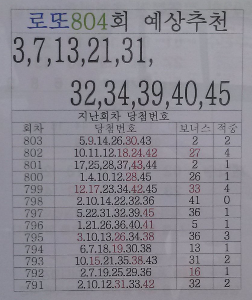 로또804회 예상추천
3,7,13,21,31,
32,34,39,40,45
지난회차 당첨번호
회차 당첨번호 보너스 적중
803 5.9.14.26.30.43 2 2
802 10.11.12.18.24.42 27 4
801 17.25.28.37.43.44 2 1
800 1.4.10.12.28.45 26 1
799 12.17.23.34.42.45 33 4
798 2.10.14.22.32.36 41 0
797 5.22.31.32.39.45 36 1
796 1.21.26.36.40.41 5 1
795 3.10.13.26.34.38 36 3
794 6.7.18.19.30.38 13 1
793 10.15.21.35.38.43 31 2
792 2.7.19.25.29.36 16 1
791 2.10.12.31.33.42 32 2